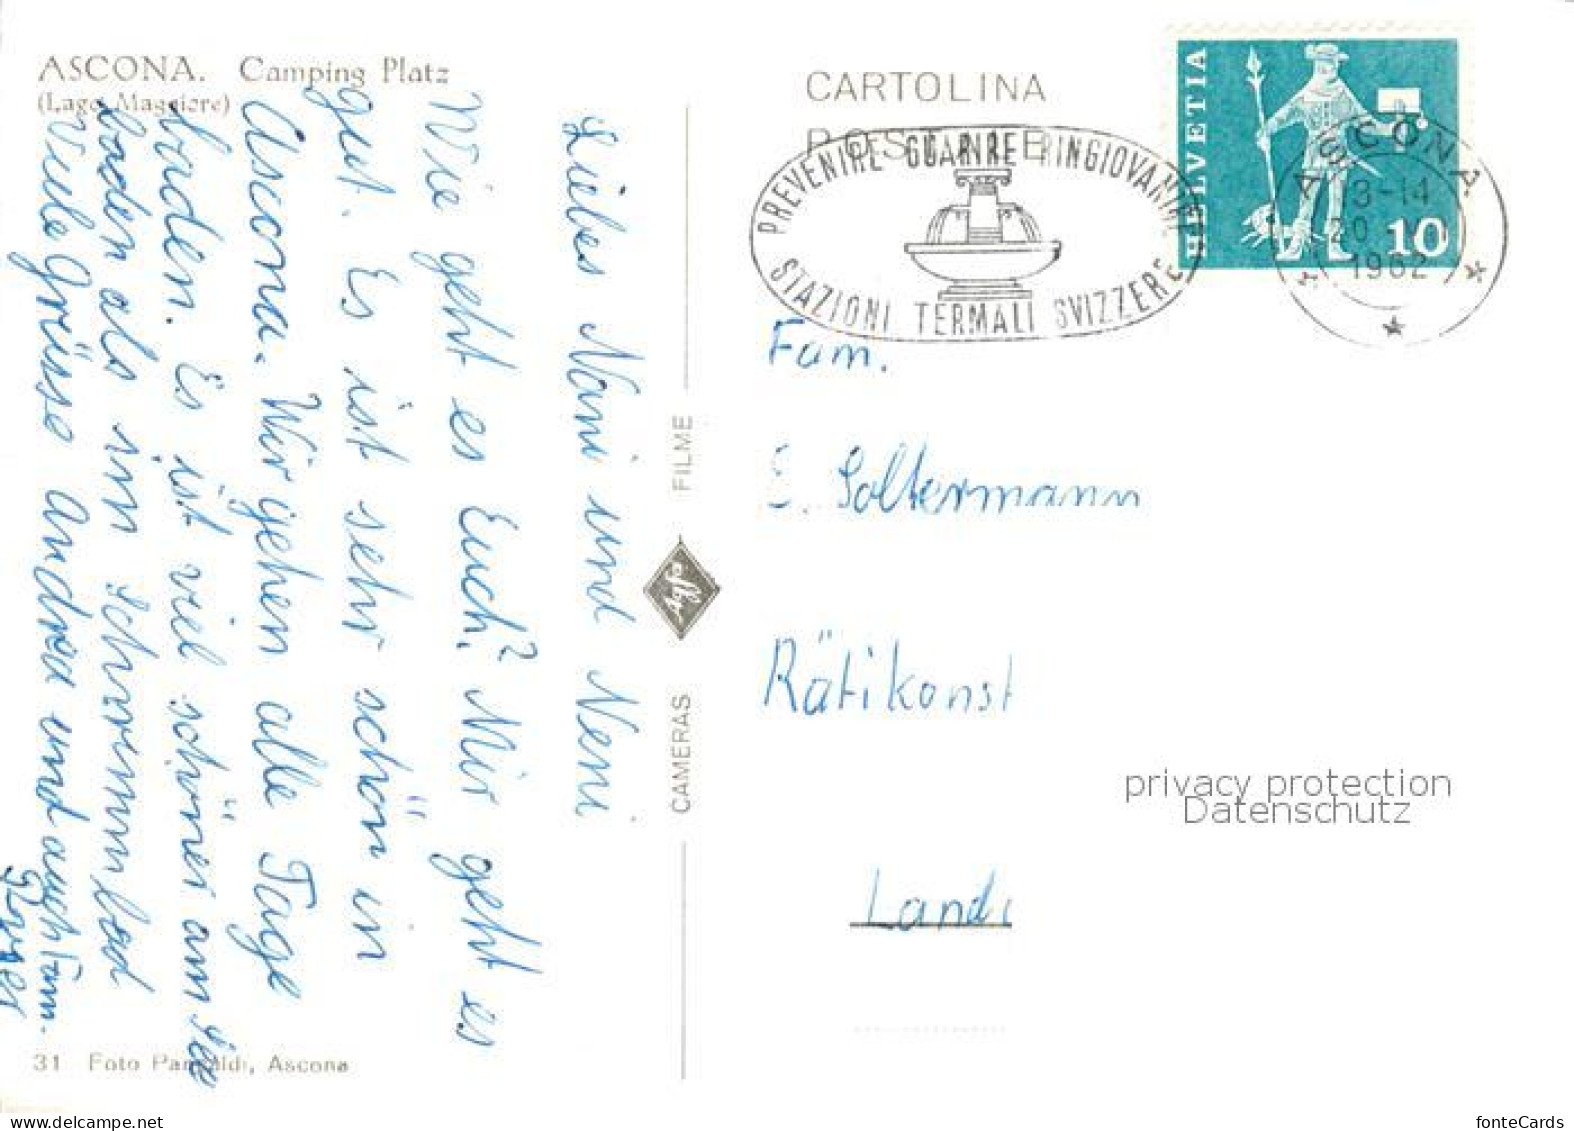 ASCONA. Camping Platz
(Lago Maggiore)
CARTOLINA
POSTALE
PREVENIRE GUARIRE RINGIOVANIRE
STAZIONI TERMALI SVIZZERE
HELVETIA
10
ASCONA
13-14
20
1962
Liebes Nani und Neni
Wie geht es Euch? Mir geht es
gut. Es ist sehr schön in
Ascona. Wir gehen alle Tage
baden. Es ist viel schöner am See
baden als im Schwimmbad
Viele Grüsse Andrea und auch Fam.
FILME
CAMERAS
Fam.
E. Soltermann
Rätikonst
Land
privacy protection
Datenschutz
31 Foto Ascona
www.delcampe.net
fonteCards